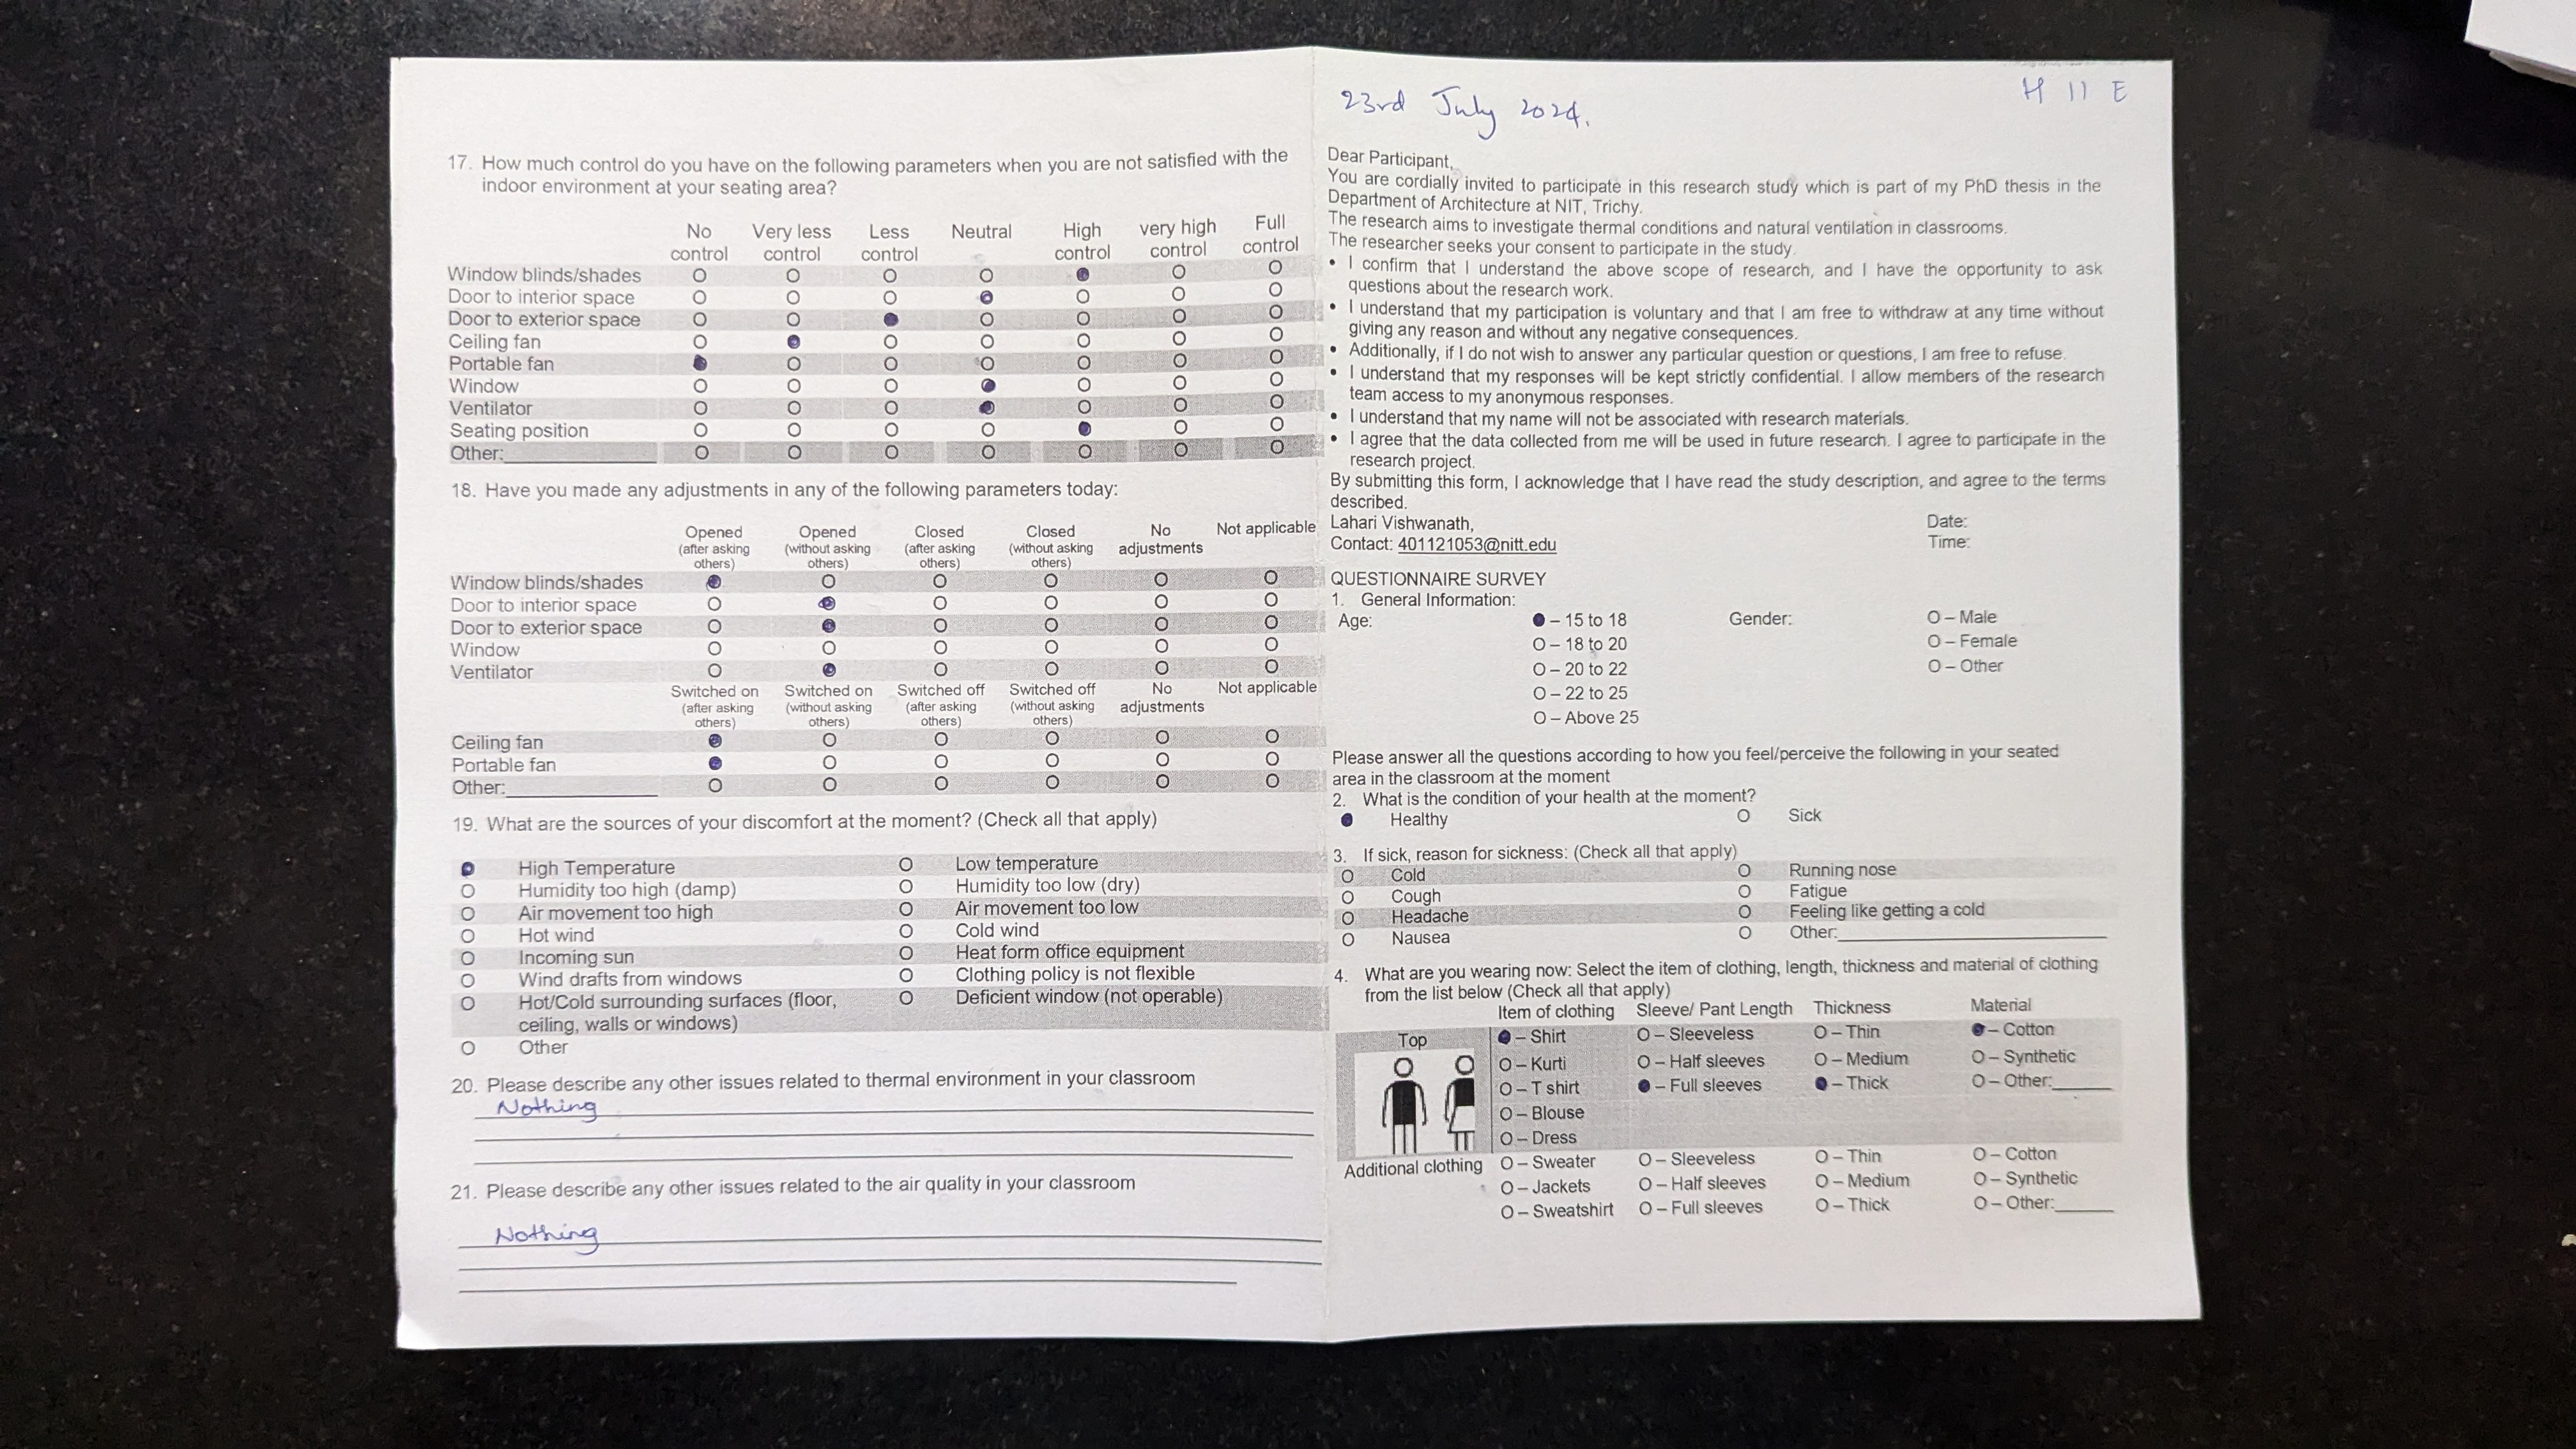 17. How much control do you have on the following parameters when you are not satisfied with the
indoor environment at your seating area?
No control Very less control Less control Neutral High control very high control Full control
Window blinds/shades O O O O ● O O
Door to interior space O O O ● O O O
Door to exterior space O O ● O O O O
Ceiling fan O ● O O O O O
Portable fan ● O O O O O O
Window O O O ● O O O
Ventilator O O O ● O O O
Seating position O O O O ● O O
Other:__________ O O O O O O O
18. Have you made any adjustments in any of the following parameters today:
Opened (after asking others) Opened (without asking others) Closed (after asking others) Closed (without asking others) No adjustments Not applicable
Window blinds/shades ● O O O O O
Door to interior space O ● O O O O
Door to exterior space O ● O O O O
Window O O O O O O
Ventilator O ● O O O O
Switched on (after asking others) Switched on (without asking others) Switched off (after asking others) Switched off (without asking others) No adjustments Not applicable
Ceiling fan ● O O O O O
Portable fan ● O O O O O
Other:__________ O O O O O O
19. What are the sources of your discomfort at the moment? (Check all that apply)
● High Temperature O Low temperature
O Humidity too high (damp) O Humidity too low (dry)
O Air movement too high O Air movement too low
O Hot wind O Cold wind
O Incoming sun O Heat form office equipment
O Wind drafts from windows O Clothing policy is not flexible
O Hot/Cold surrounding surfaces (floor, O Deficient window (not operable)
ceiling, walls or windows)
O Other
20. Please describe any other issues related to thermal environment in your classroom
Nothing
21. Please describe any other issues related to the air quality in your classroom
Nothing
23rd July 2024.
H 11 E
Dear Participant,
You are cordially invited to participate in this research study which is part of my PhD thesis in the
Department of Architecture at NIT, Trichy.
The research aims to investigate thermal conditions and natural ventilation in classrooms.
The researcher seeks your consent to participate in the study.
• I confirm that I understand the above scope of research, and I have the opportunity to ask
questions about the research work.
• I understand that my participation is voluntary and that I am free to withdraw at any time without
giving any reason and without any negative consequences.
• Additionally, if I do not wish to answer any particular question or questions, I am free to refuse.
• I understand that my responses will be kept strictly confidential. I allow members of the research
team access to my anonymous responses.
• I understand that my name will not be associated with research materials.
• I agree that the data collected from me will be used in future research. I agree to participate in the
research project.
By submitting this form, I acknowledge that I have read the study description, and agree to the terms
described.
Lahari Vishwanath, Date:
Contact: 401121053@nitt.edu Time:
QUESTIONNAIRE SURVEY
1. General Information:
Age: ● – 15 to 18 Gender: O – Male
O – 18 to 20 O – Female
O – 20 to 22 O – Other
O – 22 to 25
O – Above 25
Please answer all the questions according to how you feel/perceive the following in your seated
area in the classroom at the moment
2. What is the condition of your health at the moment?
● Healthy O Sick
3. If sick, reason for sickness: (Check all that apply)
O Cold O Running nose
O Cough O Fatigue
O Headache O Feeling like getting a cold
O Nausea O Other:__________
4. What are you wearing now: Select the item of clothing, length, thickness and material of clothing
from the list below (Check all that apply)
Item of clothing Sleeve/ Pant Length Thickness Material
Top ● – Shirt O – Sleeveless O – Thin ● – Cotton
O – Kurti O – Half sleeves O – Medium O – Synthetic
O – T shirt ● – Full sleeves ● – Thick O – Other:______
O – Blouse
O – Dress
Additional clothing O – Sweater O – Sleeveless O – Thin O – Cotton
O – Jackets O – Half sleeves O – Medium O – Synthetic
O – Sweatshirt O – Full sleeves O – Thick O – Other:______